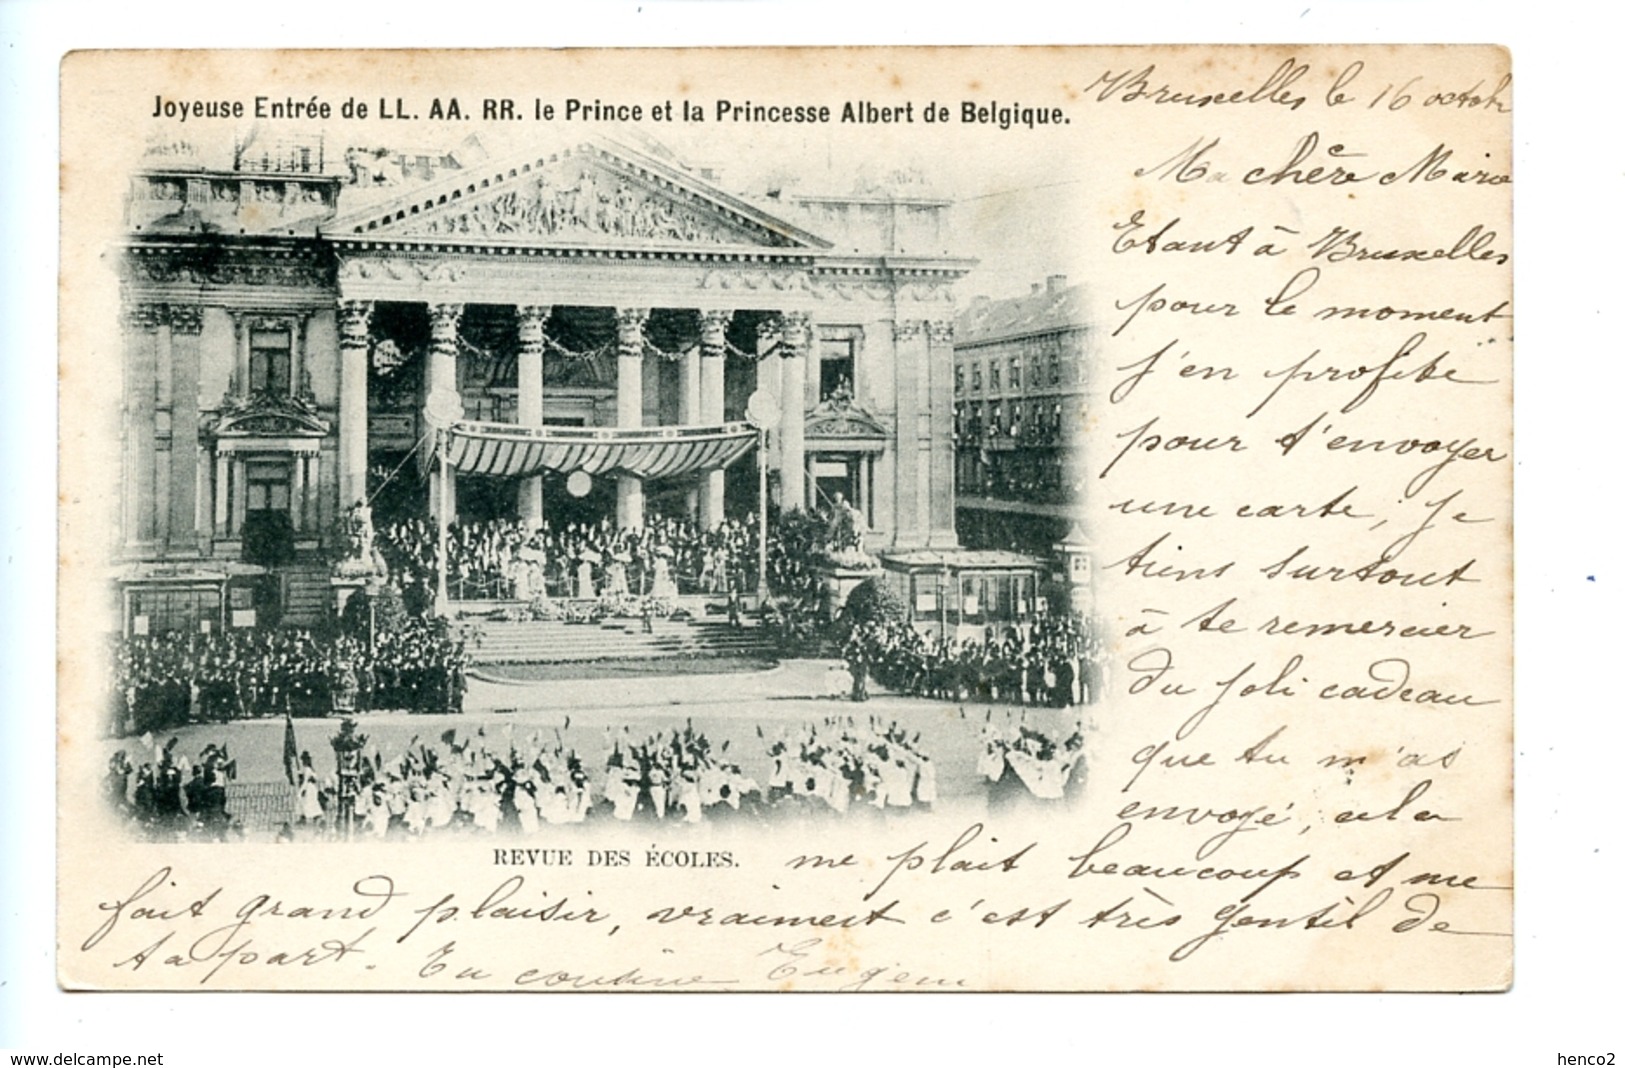 Joyeuse Entrée de LL. AA. RR. le Prince et la Princesse Albert de Belgique.
Bruxelles le 16 octob
Ma chère Marie
Etant à Bruxelles
pour le moment
j'en profite
pour t'envoyer
une carte, je
tiens surtout
à te remercier
du joli cadeau
que tu m'as
envoyé, cela
REVUE DES ÉCOLES. me plait beaucoup et me
fait grand plaisir, vraiment c'est très gentil de
ta part. Ta cousine Eugénie
www.delcampe.net
henco2